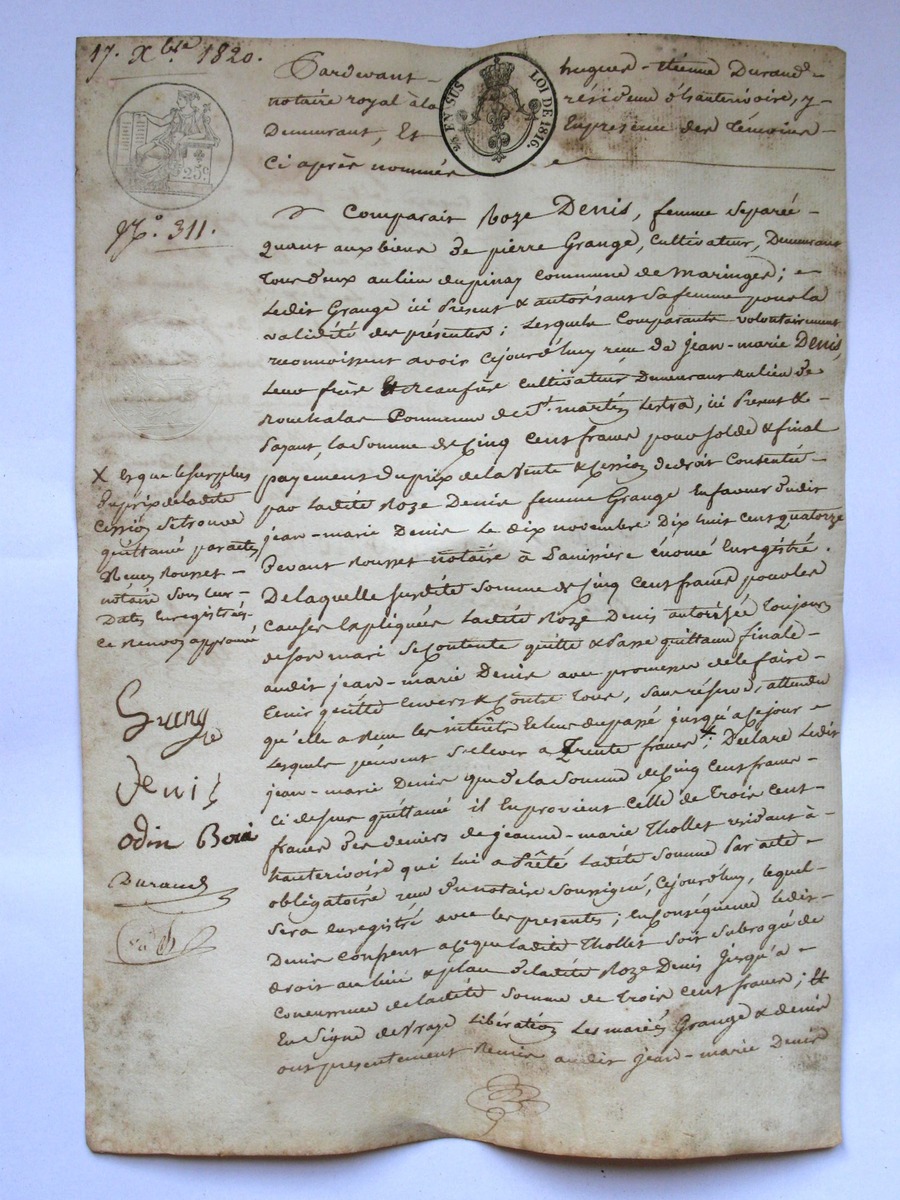 17. Xbre 1820.
Pardevant hugues-étienne Durand
notaire royal à la résidence d'hauterivoire, y
Demeurant, Et En presence des témoins
Ci après nommés
EN SUS LOI DE 1816.
25c
N.° 311.
Comparait Roze Denis, femme separée
quant aux biens de pierre Grange, Cultivateur, Demeurant
tous deux au lieu dupinay commune de Maringes;
Ledit Grange ici Present & autorisant Sa femme pour la
validité des présentes; Lesquels Comparants volontairement
reconnoissent avoir Cejourd'huy reçu de jean-marie Denis,
Leur frère & beaufrère cultivateur Demeurant au lieu de
Commune de St. martin Lestra, ici Present &
Payant, la Somme de Cinq Cent francs pour solde & final
payement du prix de la Vente & Cession de droit Consentie
par Ladite Roze Denis femme Grange En faveur dudit
jean-marie Denis le dix novembre Dix huit cent quatorze
Devant Rousset notaire à Enregistré.
De laquelle Susdite Somme de Cinq Cent francs pour les
Causes Expliquées Ladite Roze Denis autorisée toujours
de son mari Se Contente quitte & Passe quittance finale
audit jean-marie Denis avec promesse de le faire
tenir quitte Envers & Contre tous, sans réserve, attendu
qu'elle a reçu les intérêts Echus du passé jusqu'à ce jour
Lesquels peuvent S'elever a Trente francs X; Declare Ledit
jean-marie Denis que de la Somme de Cinq Cent francs
Ci dessus quittancé il En provient Celle de trois cent
francs des deniers de jeanne-marie Thollet residant à
hauterivoire qui lui a Prêté Ladite Somme Par acte
obligatoire reçu du notaire Soussigné, Cejourd'huy, lequel
Sera Enregistré avec les presentes; En Conséquence Ledit
Denis Consent a ce que Ladite Thollet Soit Subrogé de
droit au lieu & place de ladite Roze Denis jusqu'à
Concurrence de ladite Somme de trois cent francs; Et
En Signe de vraye Libération Les mariés Grange & denis
ont presentement Remis audit jean-marie Denis
X Et que le surplus
du prix de la dite
Cession Se trouve
quittancé par actes
Reçus Rousset
notaire Sous leur
Dates Enregistrés
Ce renvoi approuvé
Grange
Denis
odin
Durand